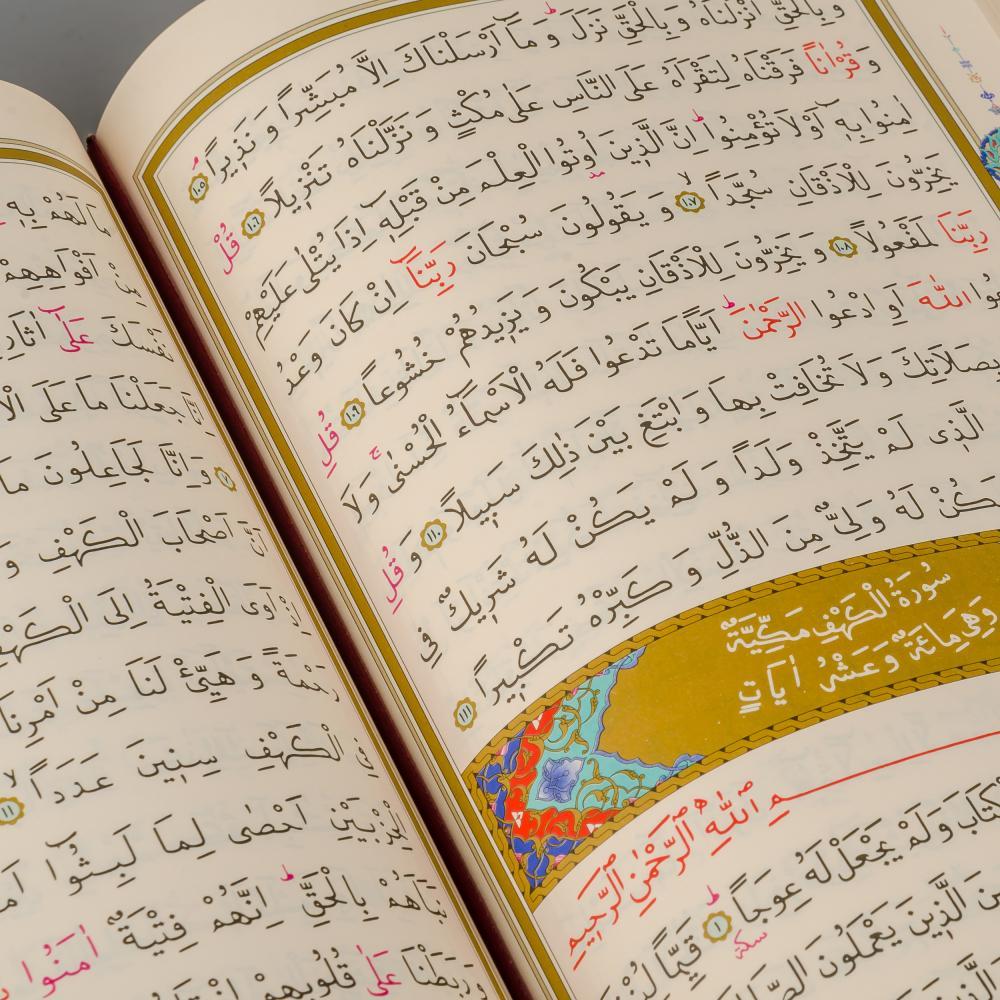 وَبِالْحَقِّ اَنْزَلْنَاهُ وَبِالْحَقِّ نَزَلَ وَمَآ اَرْسَلْنَاكَ اِلَّا مُبَشِّراً وَنَذٖيراً ﴿١٠٥﴾
وَقُرْاٰناً فَرَقْنَاهُ لِتَقْرَاَهُ عَلَى النَّاسِ عَلٰى مُكْثٍ وَنَزَّلْنَاهُ تَنْزٖيلاً ﴿١٠٦﴾ قُلْ
اٰمِنُوا بِهٖٓ اَوْ لَا تُؤْمِنُوا اِنَّ الَّذٖينَ اُوتُوا الْعِلْمَ مِنْ قَبْلِهٖٓ اِذَا يُتْلٰى عَلَيْهِمْ
يَخِرُّونَ لِلْاَذْقَانِ سُجَّداً ﴿١٠٧﴾ وَيَقُولُونَ سُبْحَانَ رَبِّنَآ اِنْ كَانَ وَعْدُ
رَبِّنَا لَمَفْعُولاً ﴿١٠٨﴾ وَيَخِرُّونَ لِلْاَذْقَانِ يَبْكُونَ وَيَزٖيدُهُمْ خُشُوعاً ﴿١٠٩﴾ قُلِ
اللّٰهَ اَوِ ادْعُوا الرَّحْمٰنَ اَيّاً مَا تَدْعُوا فَلَهُ الْاَسْمَآءُ الْحُسْنٰى وَلَا
بِصَلَاتِكَ وَلَا تُخَافِتْ بِهَا وَابْتَغِ بَيْنَ ذٰلِكَ سَبٖيلاً ﴿١١٠﴾ وَقُلِ
الَّذٖى لَمْ يَتَّخِذْ وَلَداً وَلَمْ يَكُنْ لَهُ شَرٖيكٌ فِى
يَكُنْ لَهُ وَلِىٌّ مِنَ الذُّلِّ وَكَبِّرْهُ تَكْبٖيراً ﴿١١١﴾
سُورَةُ الْكَهْفِ مَكِّيَّةٌ
وَهِىَ مِائَةٌ وَعَشْرُ اٰيَاتٍ
بِسْمِ اللّٰهِ الرَّحْمٰنِ الرَّحٖيمِ
الْكِتَابَ وَلَمْ يَجْعَلْ لَهُ عِوَجاً ﴿١﴾ قَيِّماً
الَّذٖينَ يَعْمَلُونَ
مَا لَهُمْ بِهٖ
مِنْ اَفْوَاهِهِمْ
نَفْسَكَ عَلٰٓى
اِنَّا جَعَلْنَا مَا عَلَى
﴿٧﴾ وَاِنَّا لَجَاعِلُونَ مَا
اَنَّ اَصْحَابَ الْكَهْفِ وَ
اِذْ اَوَى الْفِتْيَةُ اِلَى الْكَهْفِ
رَحْمَةً وَهَيِّئْ لَنَا مِنْ اَمْرِنَا
فِى الْكَهْفِ سِنٖينَ عَدَداً ﴿١١﴾
الْحِزْبَيْنِ اَحْصٰى لِمَا لَبِثُٓوا
نَبَاَهُمْ بِالْحَقِّ اِنَّهُمْ فِتْيَةٌ اٰمَنُوا
وَرَبَطْنَا عَلٰى قُلُوبِهِمْ